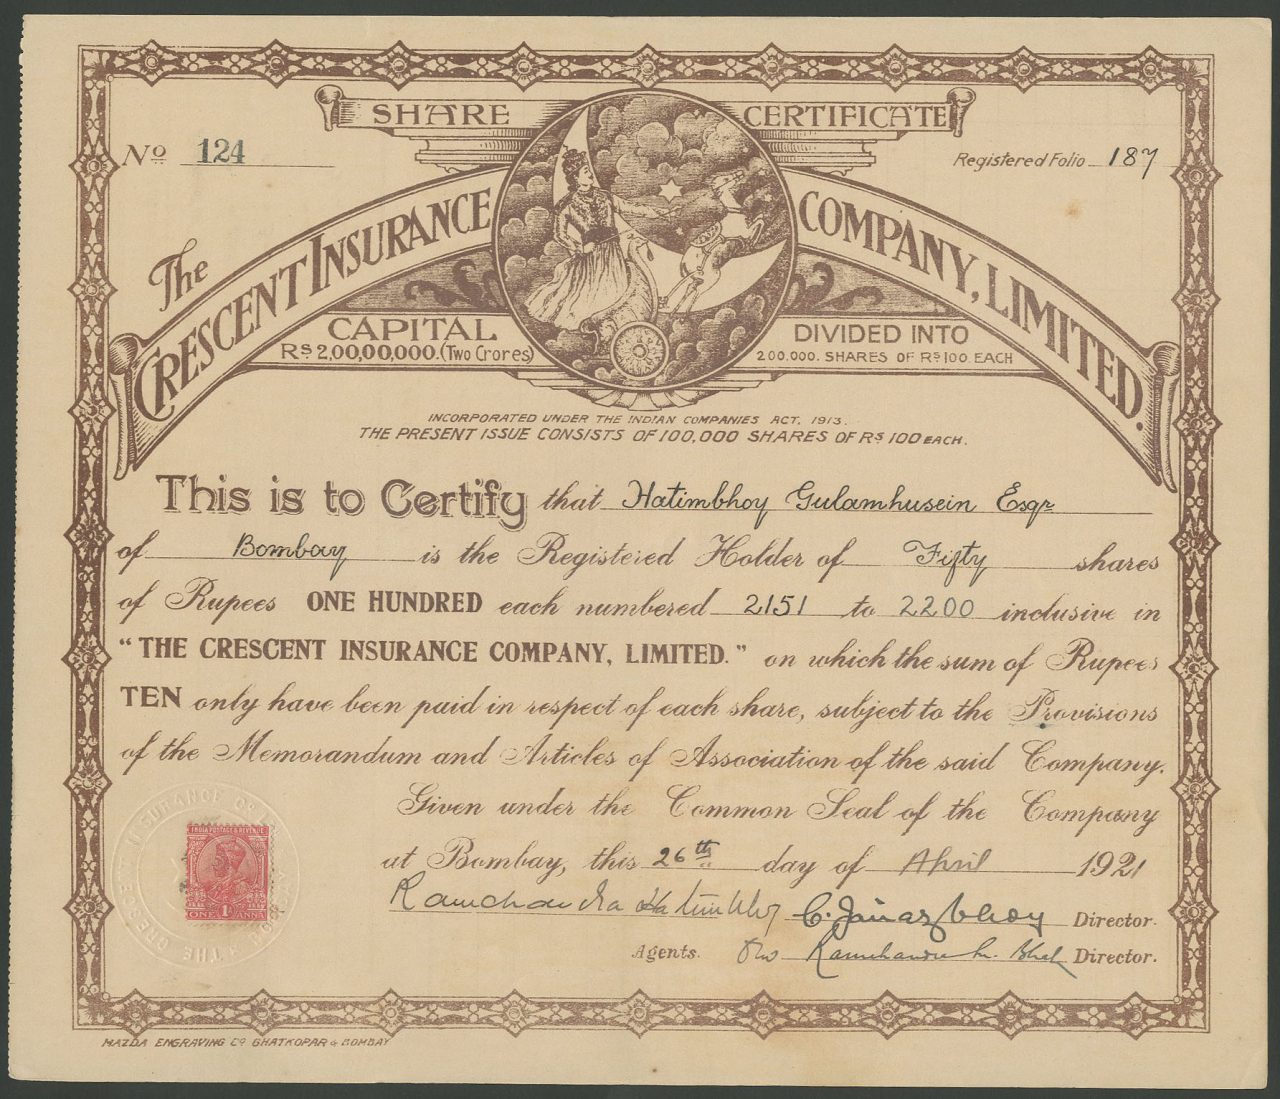 SHARE CERTIFICATE
No 124
Registered Folio 187
The CRESCENT INSURANCE COMPANY, LIMITED.
CAPITAL
Rs 2,00,00,000. (Two Crores)
DIVIDED INTO
200.000. SHARES OF Rs 100. EACH
INCORPORATED UNDER THE INDIAN COMPANIES ACT, 1913.
THE PRESENT ISSUE CONSISTS OF 100,000 SHARES OF Rs 100 EACH.
This is to Certify that Hatimbhoy Gulamhusein Esqr
of Bombay is the Registered Holder of Fifty shares
of Rupees ONE HUNDRED each numbered 2151 to 2200 inclusive in
"THE CRESCENT INSURANCE COMPANY, LIMITED." on which the sum of Rupees
TEN only have been paid in respect of each share, subject to the Provisions
of the Memorandum and Articles of Association of the said Company.
Given under the Common Seal of the Company
at Bombay, this 26th day of April 1921
Ramchandra Hatimbhoy Director.
Agents. Director.
THE CRESCENT INSURANCE CO
INDIA POSTAGE & REVENUE
ONE 1A ANNA
MAZDA ENGRAVING Co GHATKOPAR & BOMBAY